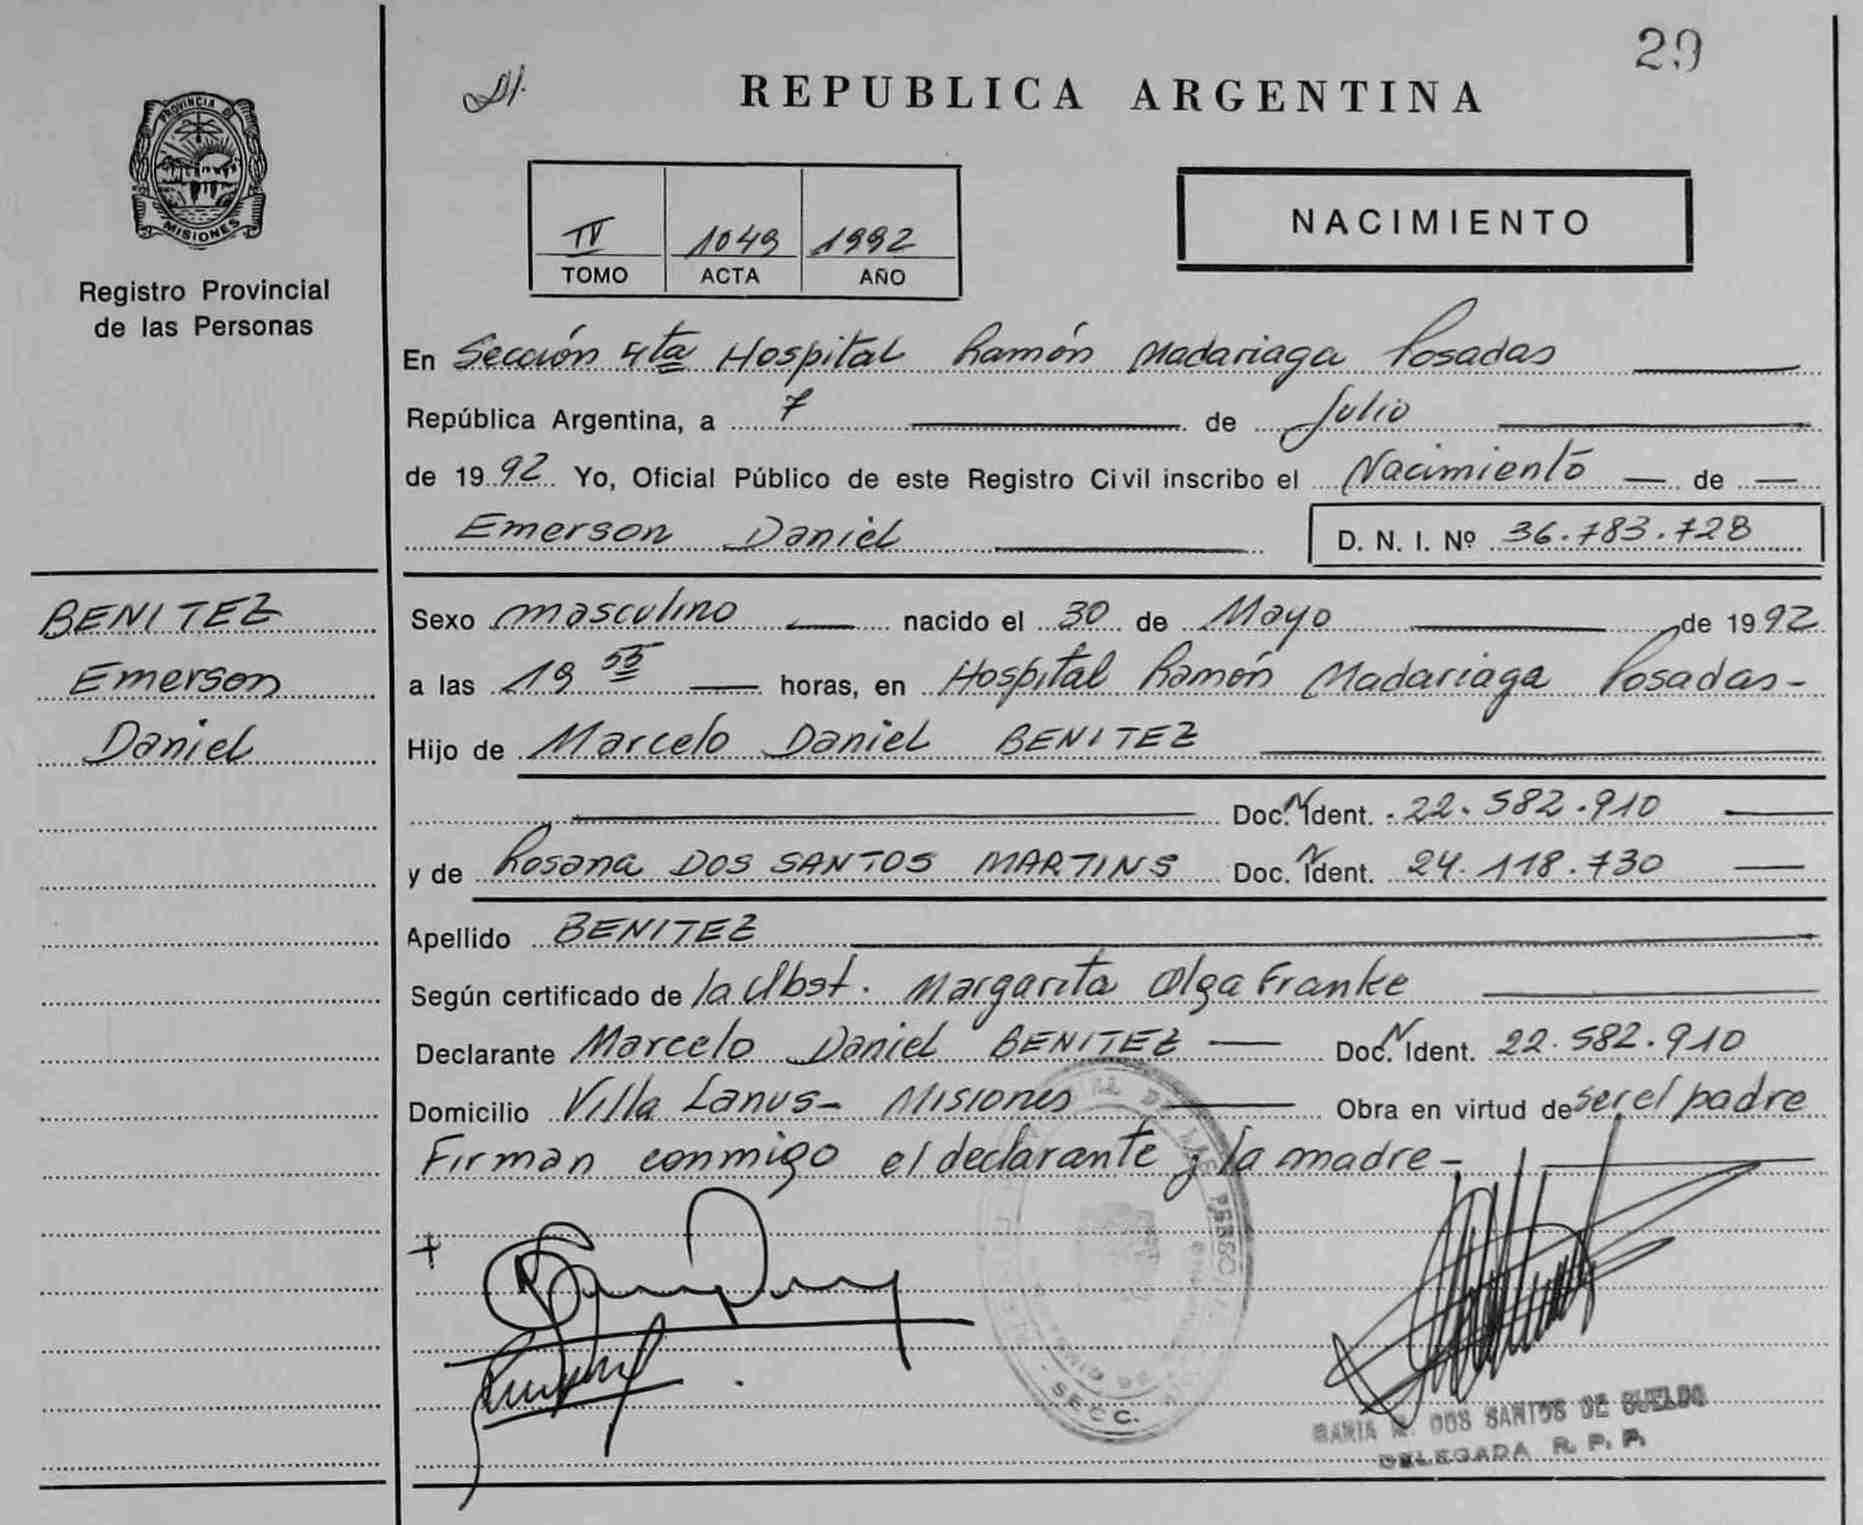 29
REPUBLICA ARGENTINA
PROVINCIA DE
MISIONES
Registro Provincial
de las Personas
IV 1049 1992
TOMO ACTA AÑO
NACIMIENTO
En Sección 4ta Hospital Ramón Madariaga Posadas
República Argentina, a 7 de Julio
de 1992 Yo, Oficial Público de este Registro Civil inscribo el Nacimiento de
Emerson Daniel D. N. I. Nº 36.783.728
BENITEZ
Emerson
Daniel
Sexo masculino nacido el 30 de Mayo de 1992
a las 19 55 horas, en Hospital Ramón Madariaga Posadas-
Hijo de Marcelo Daniel BENITEZ
Doc. N. Ident. 22.582.910
y de Rosana DOS SANTOS MARTINS Doc. N. Ident. 24.118.730
Apellido BENITEZ
Según certificado de la Obst. Margarita Olga Franke
Declarante Marcelo Daniel BENITEZ Doc. N. Ident. 22.582.910
Domicilio Villa Lanus- Misiones Obra en virtud de ser el padre
Firman conmigo el declarante y la madre-
SECC.
MARIA M. DOS SANTOS DE SUELDO
DELEGADA R. P. P.